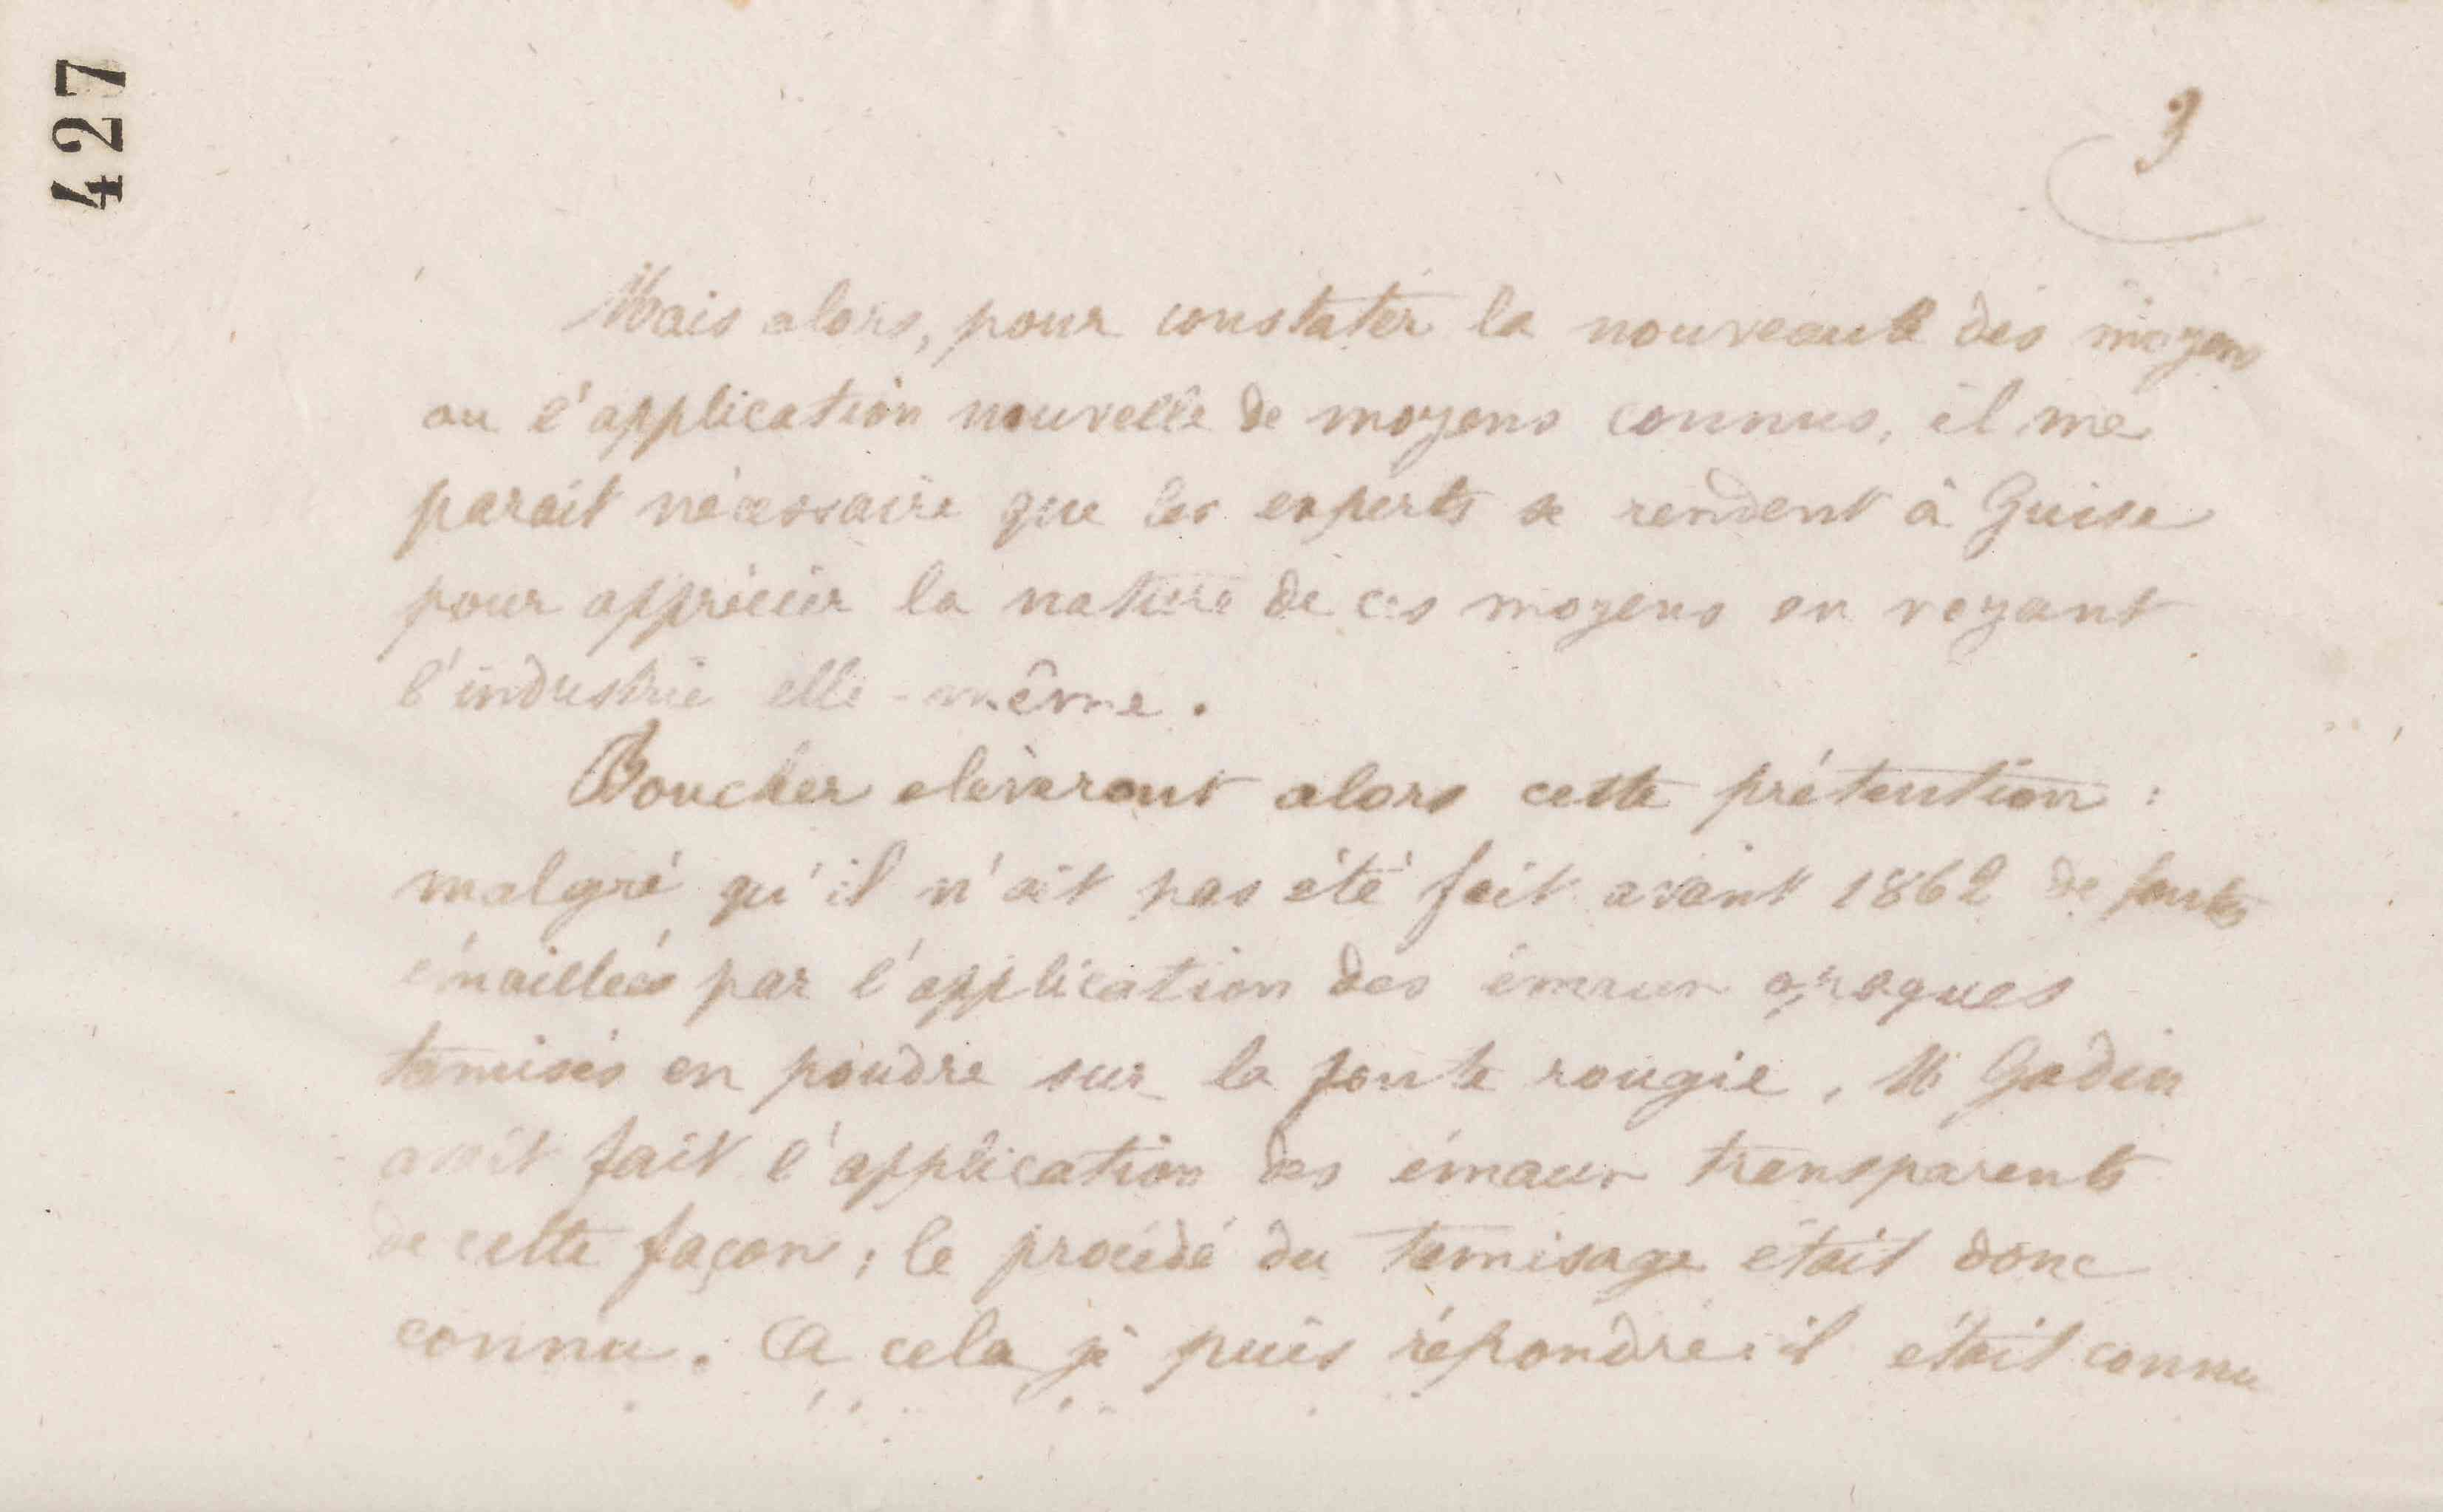 427
3
Mais alors, pour constater la nouveauté des moyens
ou l'application nouvelle de moyens connus, il me
parait nécessaire que les experts se rendent à Guise
pour apprécier la nature de ces moyens en voyant
l'industrie elle-même.
Boucher elèveront alors cette prétention :
malgré qu'il n'ait pas été fait avant 1862 de fontes
émaillées par l'application des émaux opaques
tamisés en poudre sur la fonte rougie, M Godin
avait fait l'application des émaux transparents
de cette façon ; le procédé du tamisage était donc
connu. A cela je puis répondre : il était connu